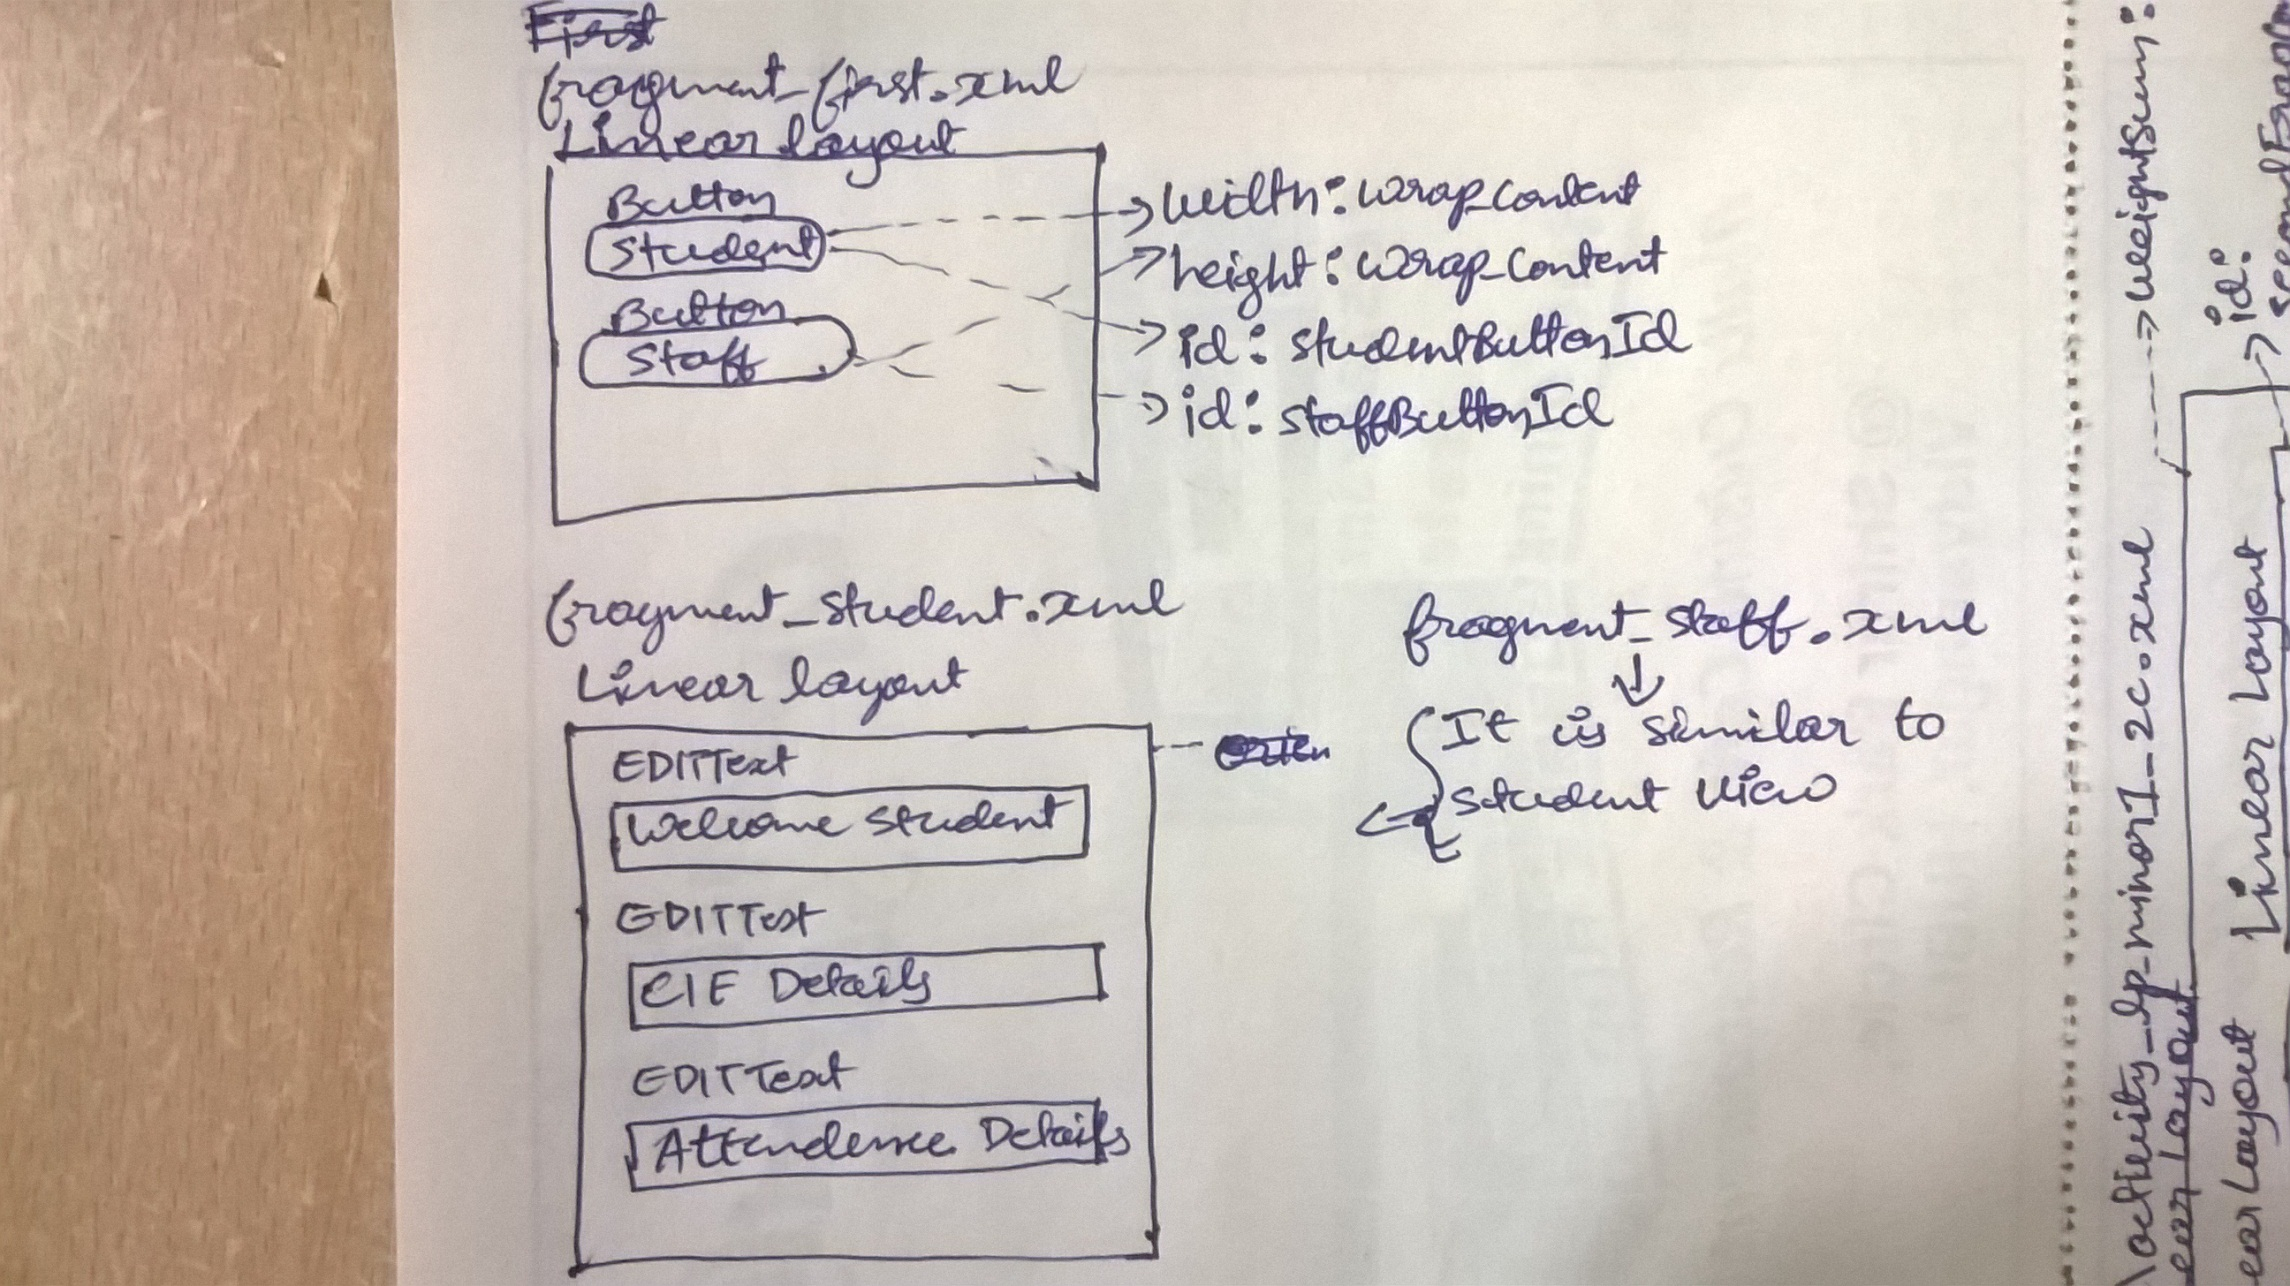 First
fragment_first.xml
Linear layout
Button
Student
Button
Staff
width: wrap_content
height: wrap_content
id: studentButtonId
id: staffButtonId
fragment_student.xml
Linear layout
EDITText
Welcome Student
EDITText
CIE Details
EDITText
Attendence Details
fragment_staff.xml
It is similar to
student view
weightSum:
id:
activity_lp_minor1_2c.xml
Linear Layout
ear Layout